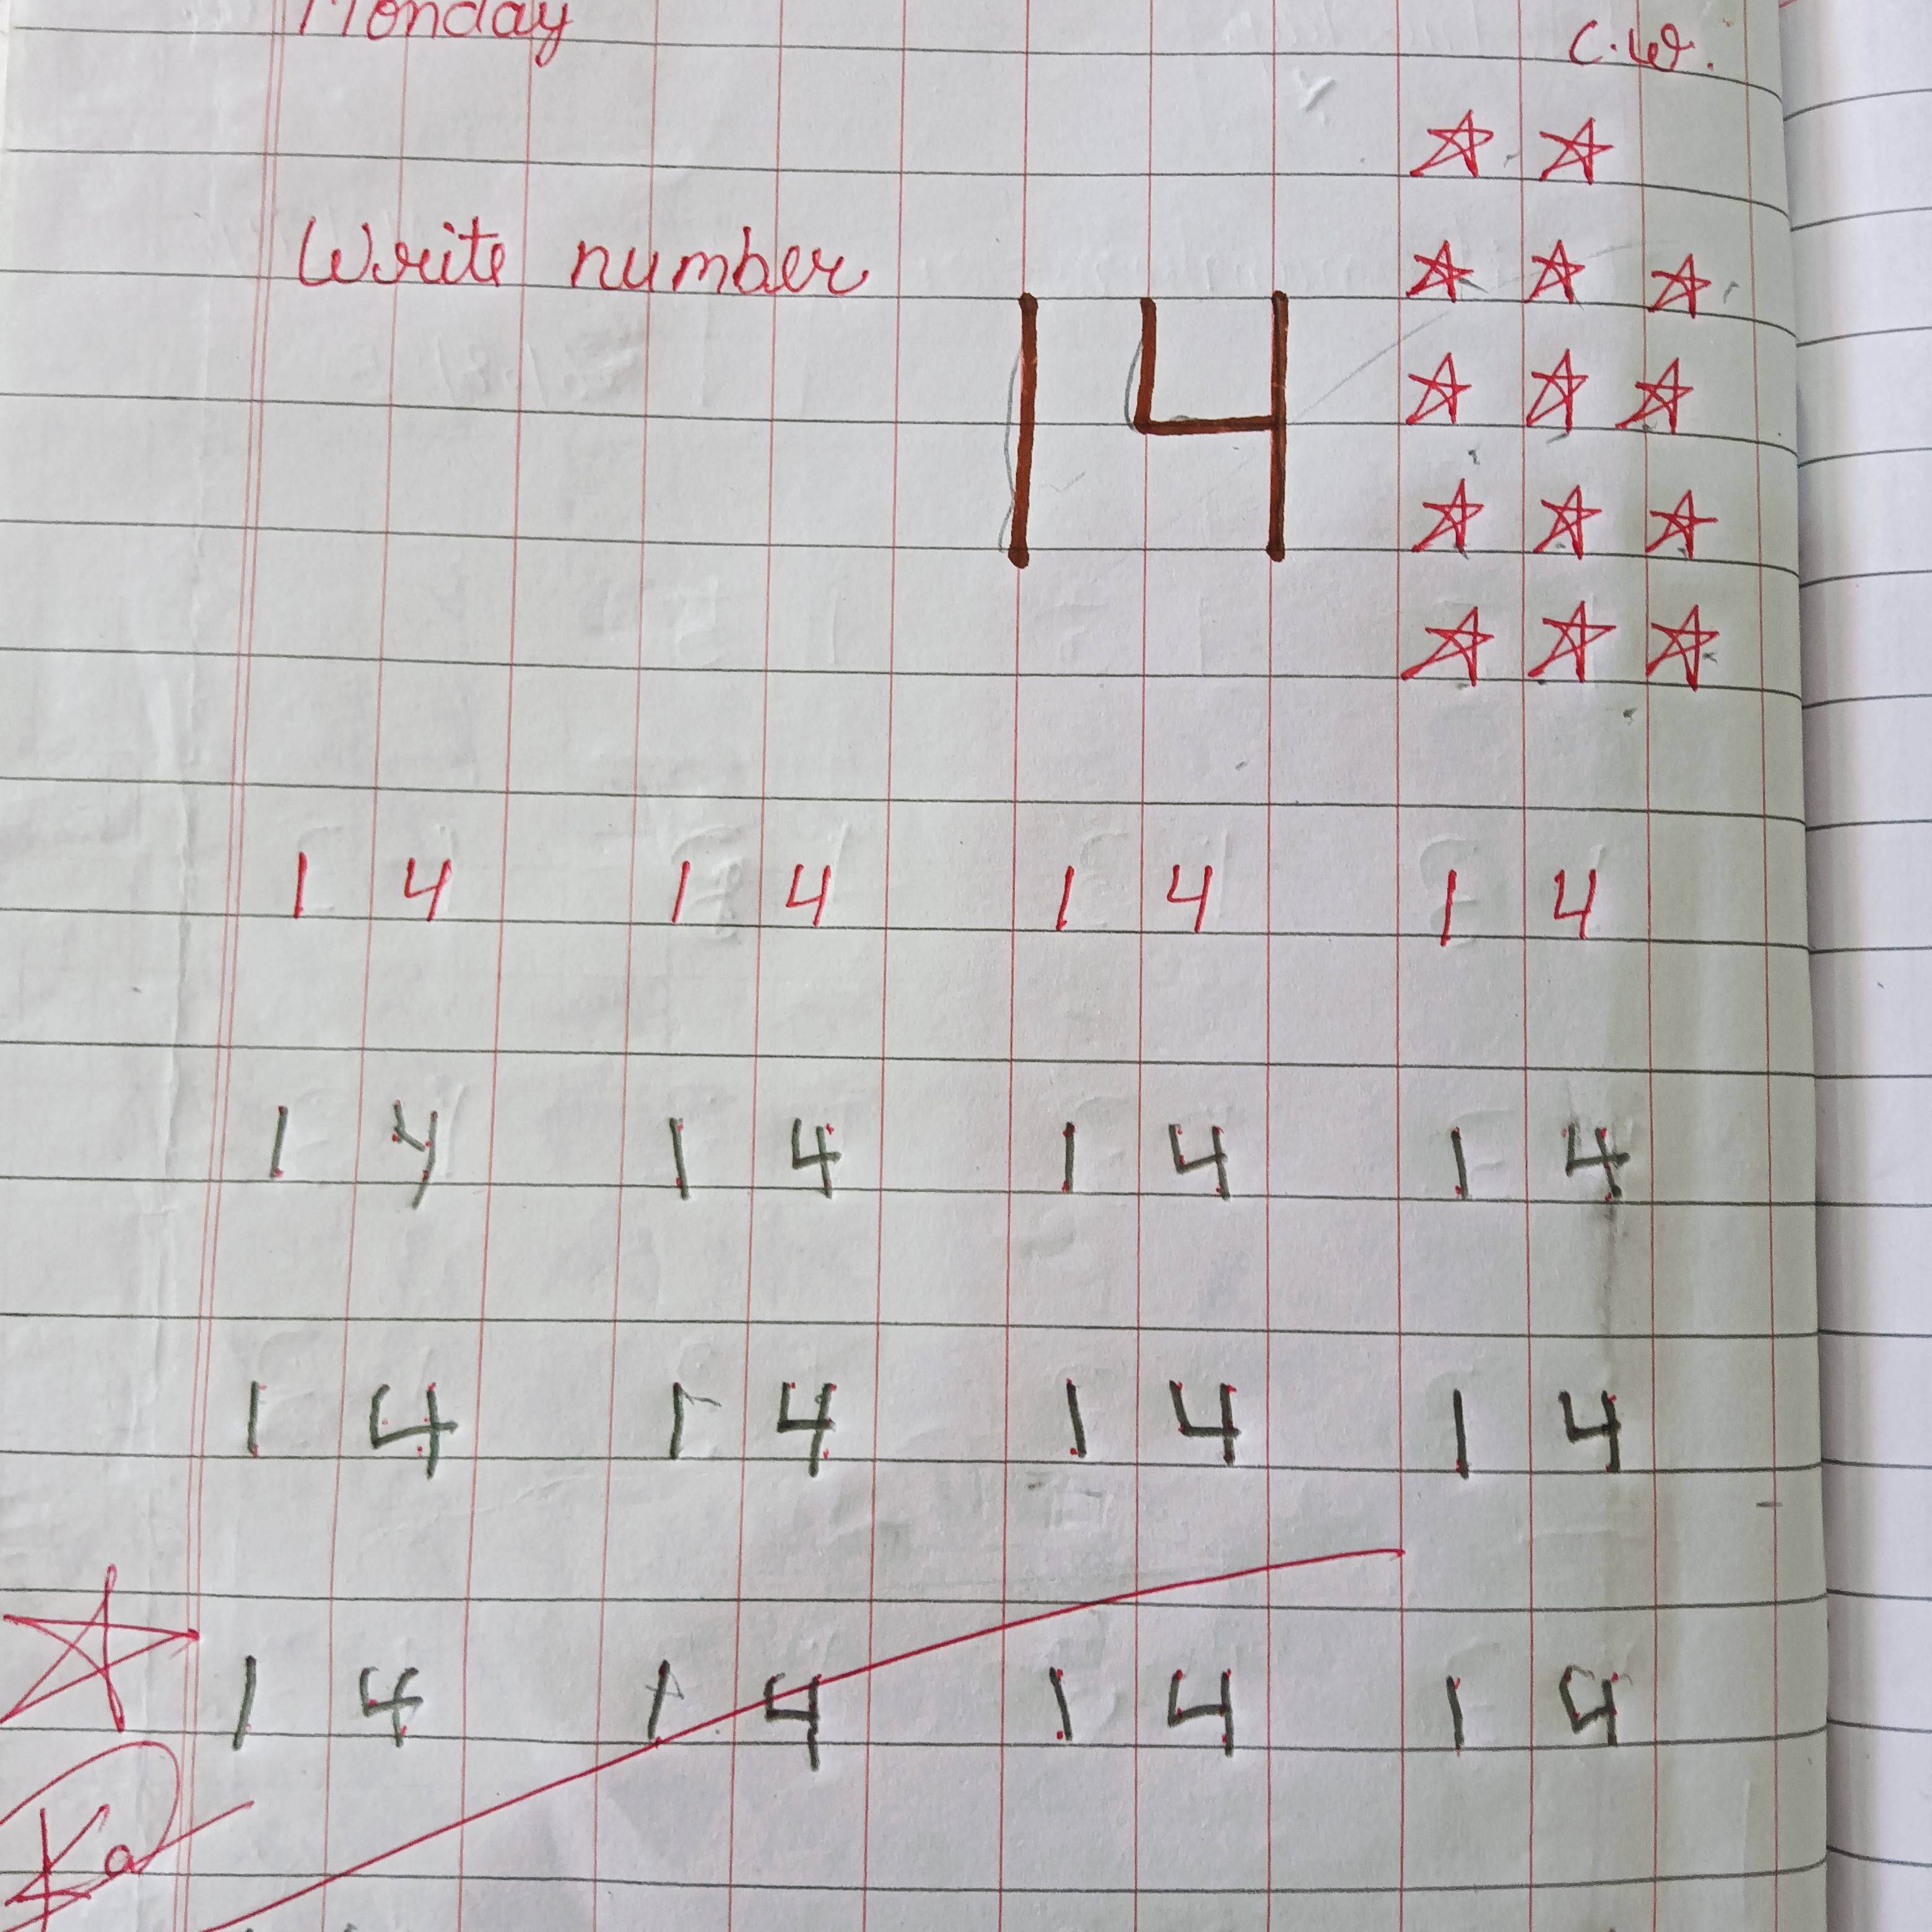 Monday
C.W.
Write number
14
1 4 1 4 1 4 1 4
1 4 1 4 1 4 1 4
1 4 1 4 1 4 1 4
1 4 1 4 1 4 1 4